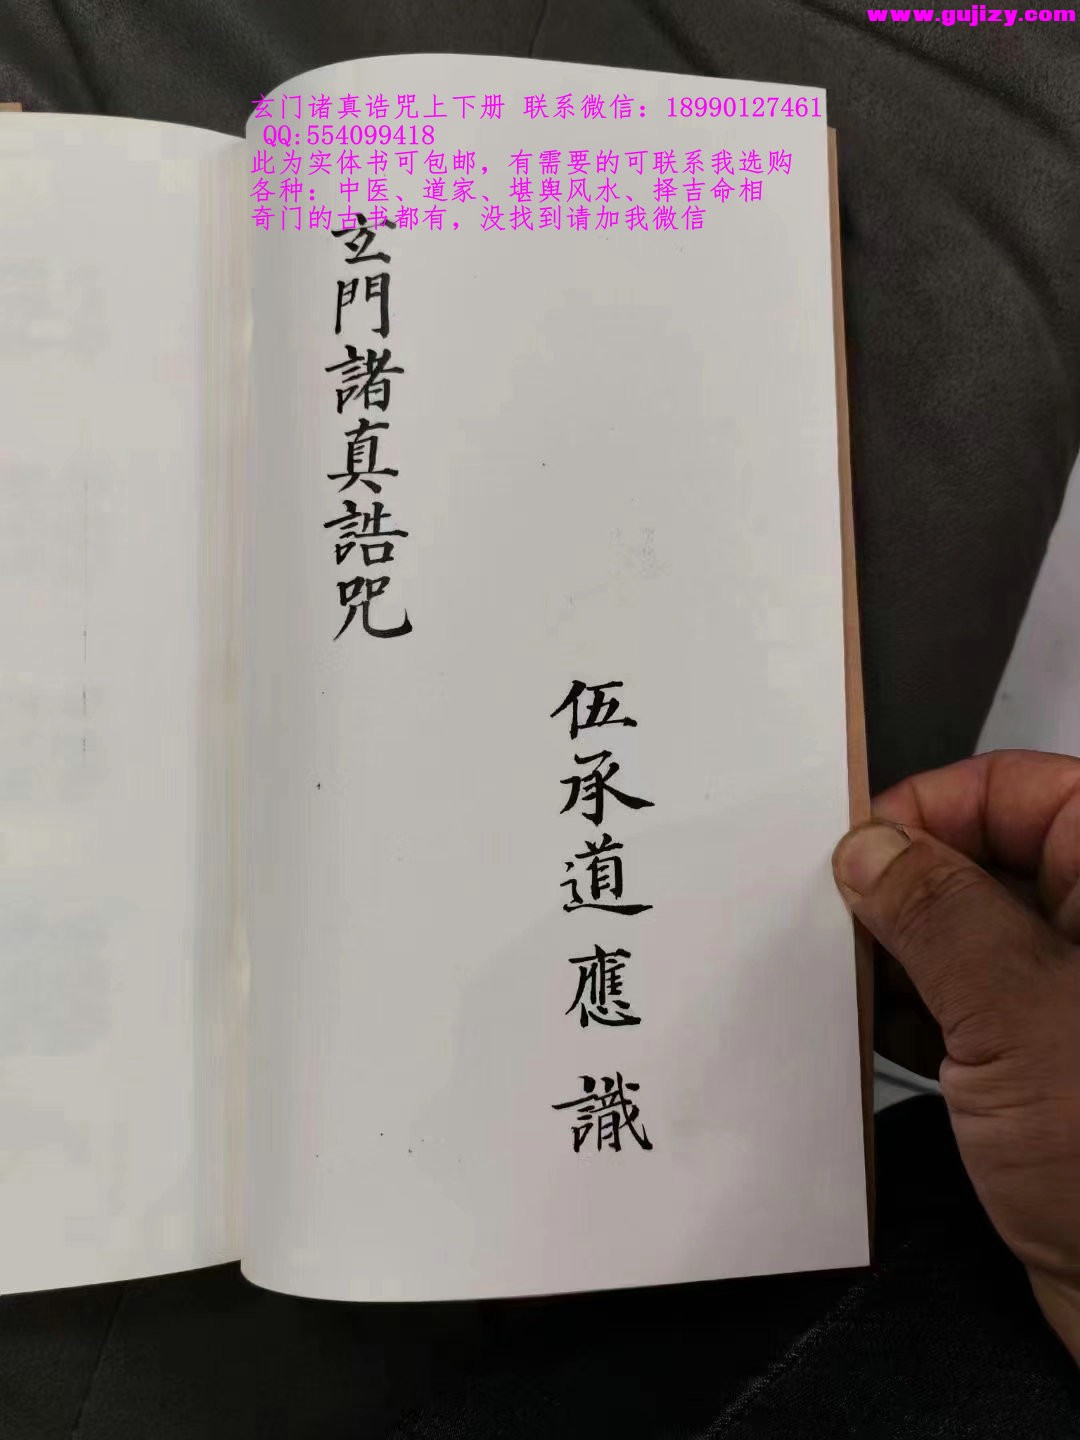 www.gujizy.com
玄门诸真诰咒上下册 联系微信：18990127461
QQ:554099418
此为实体书可包邮，有需要的可联系我选购
各种：中医、道家、堪舆风水、择吉命相
奇门的古书都有，没找到请加我微信
伍承道應識
玄門諸真誥咒